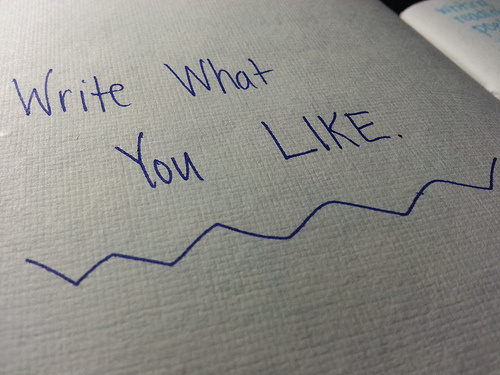 Write What
You LIKE.